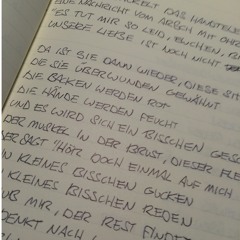 EINE NACHRICHT VOM ARSCH MIT OHR
"ES TUT MIR SO LEID,
UNSERE LIEBE IST NOCH NICHT
DA IST SIE DANN WIEDER, DIESE
DIE SIE ÜBERWUNDEN GEWÄHNT
DIE BACKEN WERDEN ROT
DIE HÄNDE WERDEN FEUCHT
UND ES WIRD SICH EIN BISSCHEN
DER MUSKEL IN DER BRUST, DIESER
ER SAGT "HÖR DOCH EINMAL AUF MICH
EIN KLEINES BISSCHEN GUCKEN
KLEINES BISSCHEN REDEN
UB MIR, DER REST FINDE
DENKT NACH